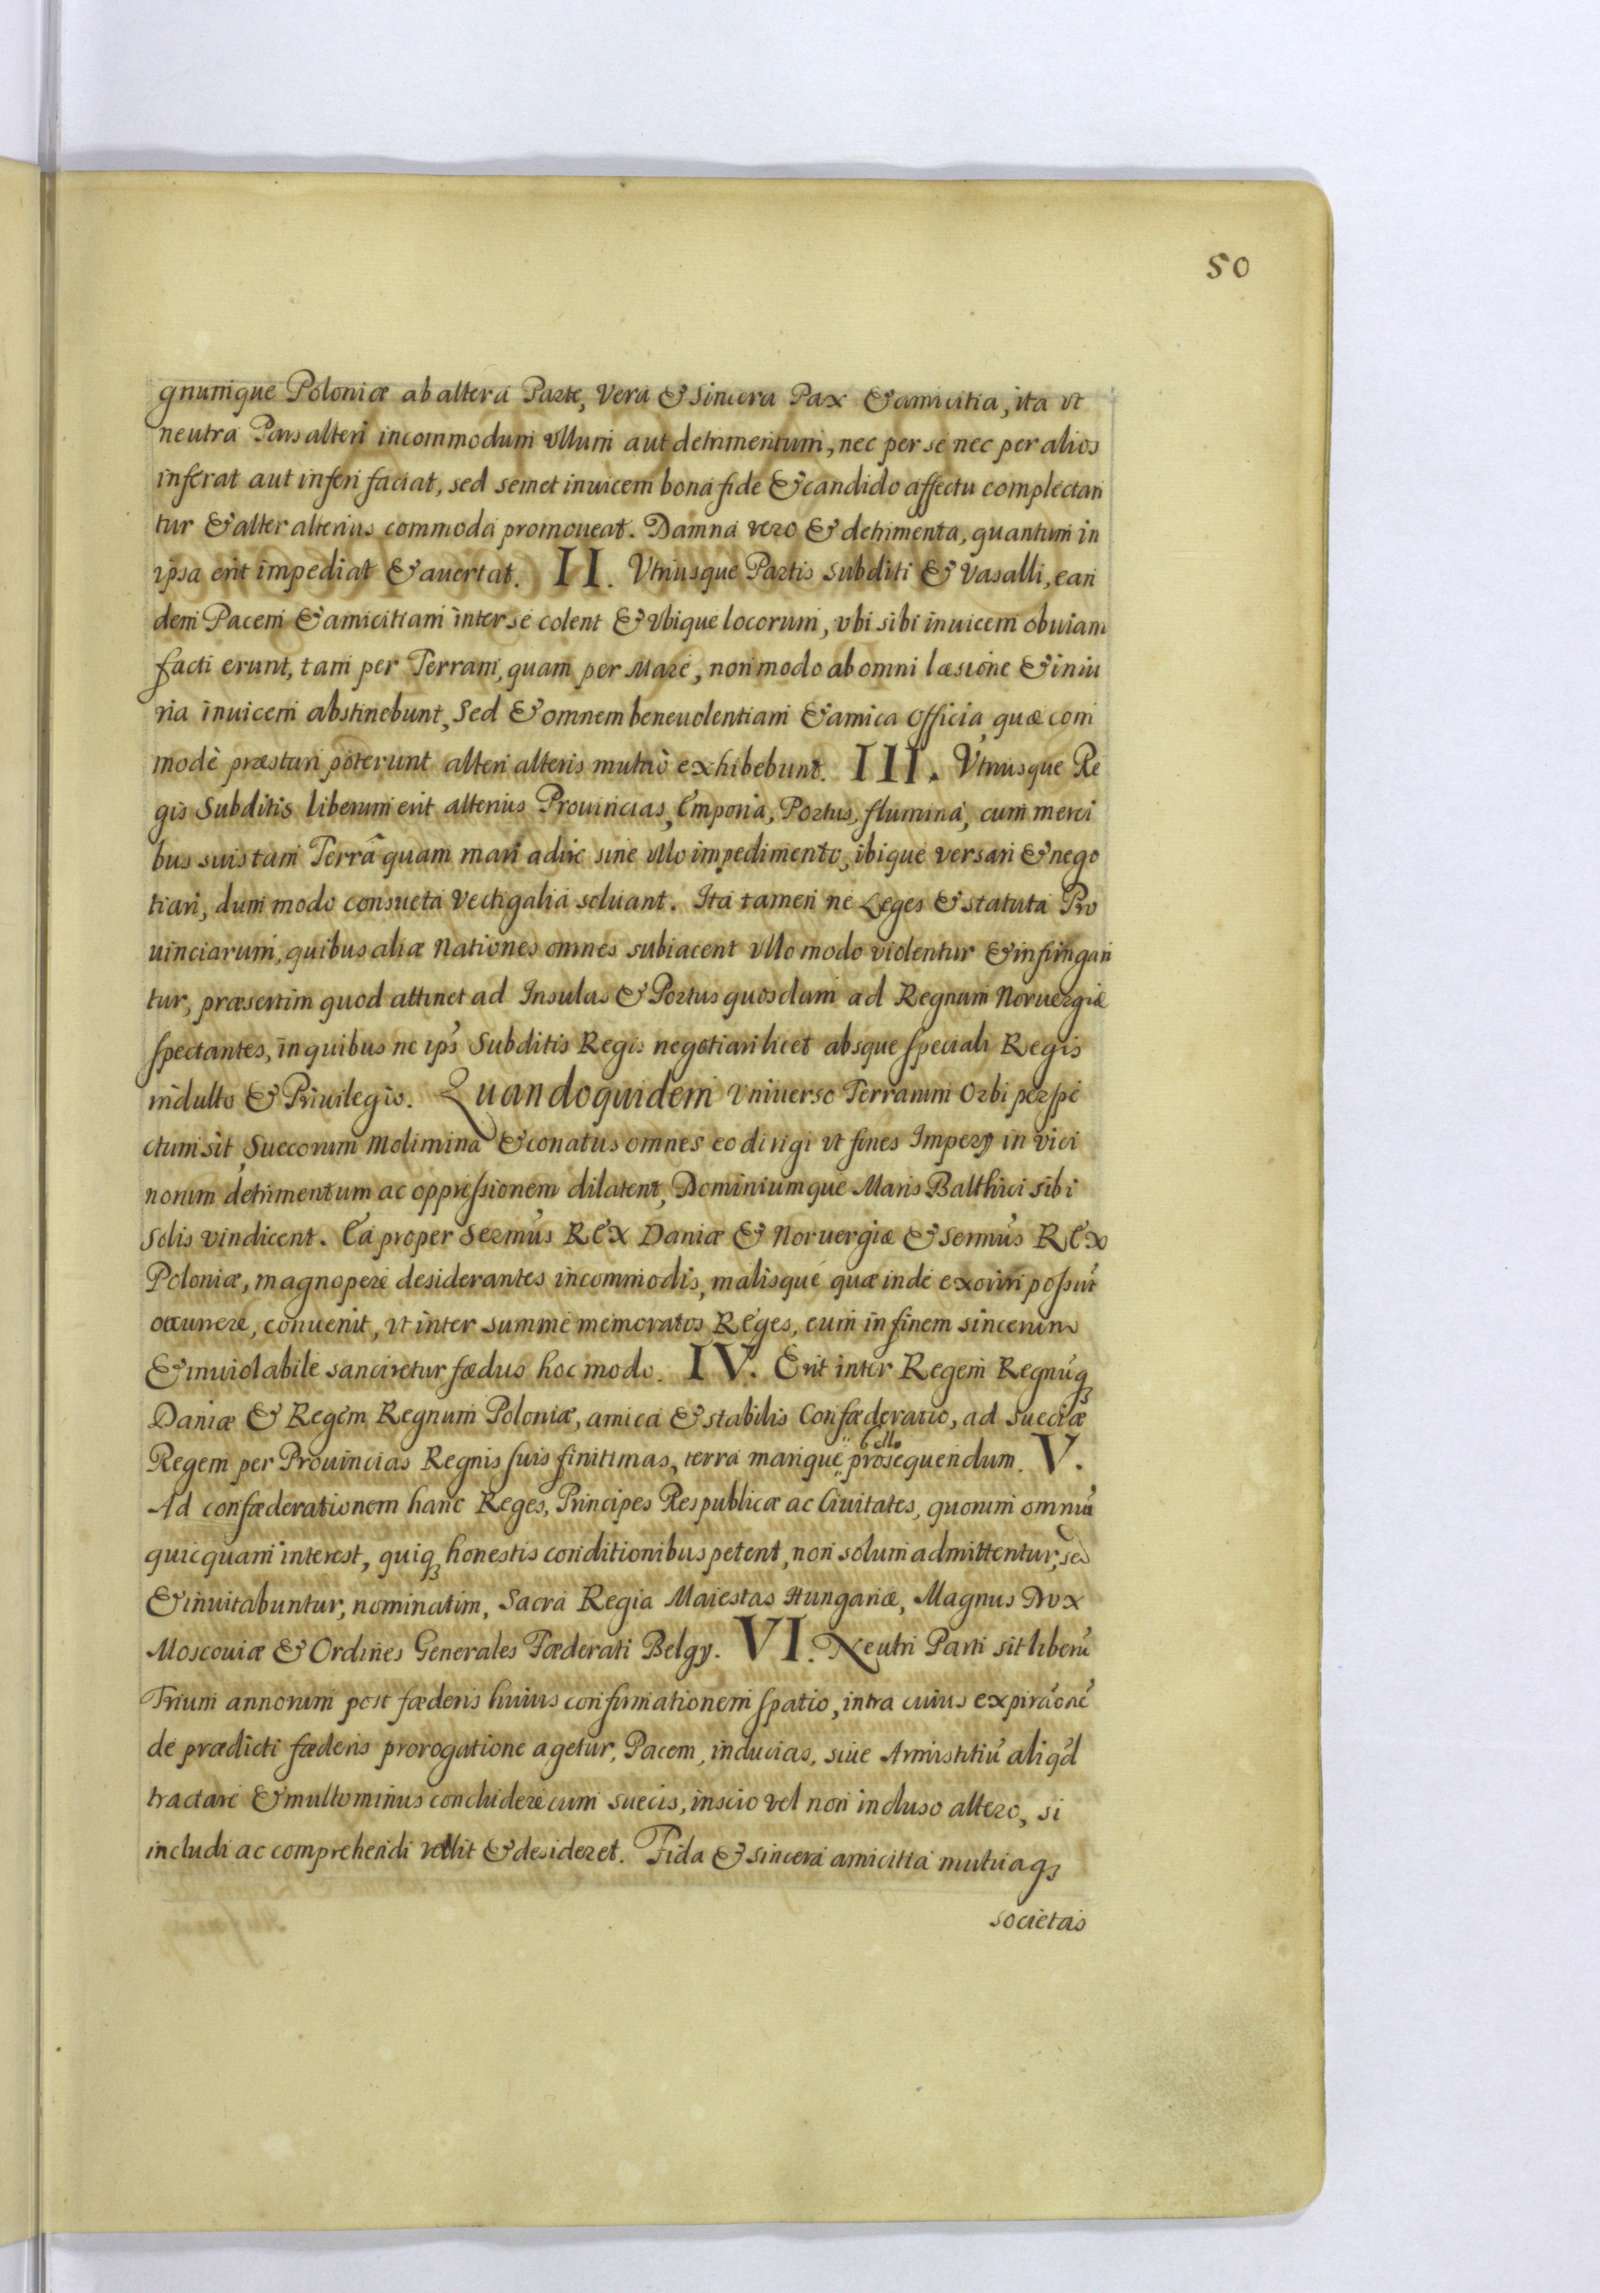 50
gnumque Poloniæ ab altera Parte, Vera & Sincera Pax & amicitia, ita vt
neutra Pars alteri incommodum vllum aut detrimentum, nec per se nec per alios
inferat aut inferi faciat, sed semet inuicem bona fide & candido affectu complectan
tur & alter alterius commoda promoueat. Damna vero & detrimenta, quantum in
ipsa erit impediat & auertat. II. Vtriusque Partis subditi & Vasalli, ean
dem Pacem & amicitiam inter se colent & Vbique locorum, vbi sibi inuicem obuiam
facti erunt, tam per Terram, quam per Mare, non modo ab omni læsione & iniu
ria inuicem abstinebunt, Sed & omnem beneuolentiam & amica officia quæ com
modè præstari poterunt alteri alteris mutuò exhibebunt. III. Vtriusque Re
gis Subditis liberum erit alterius Prouincias, Emporia, Portus, flumina, cum merci
bus suis tam Terrâ quam mari adire sine vllo impedimento, ibique versari & nego
tiari, dum modo consueta Vectigalia soluant. Ita tamen ne Leges & statuta Pro
uinciarum, quibus aliæ Nationes omnes subiacent vllo modo violentur & infringan
tur, præsertim quod attinet ad Insulas & Portus quosdam ad Regnum Noruergiæ
spectantes, in quibus ne ips̃ Subditis Regis negotiari licet absque speciali Regis
indulto & Priuilegio. Quandoquidem Vniuerso Terrarum Orbi perspe
ctum sit, Suecorum Molimina & conatus omnes eo dirigi vt fines Impery in vici
norum detrimentum ac oppressionem dilatent, Dominiumque Maris Balthici sibi
solis vindicent. Ea proper Sermũs REX Daniæ & Noruergiæ & Sermũs REX
Poloniæ, magnopere desiderantes incommodis, malisque quæ inde exoriri possũt
occurrere, conuenit, vt inter summè memoratos Reges, eum in finem sincerum
& inuiolabile sanciretur fædus hoc modo. IV. Erit inter Regem Regnũq̃
Daniæ & Regem Regnum Poloniæ, amica & stabilis Confæderatio, ad Sueciæ
Regem per Prouincias Regnis suis finitimas, terra marique bello prosequendum. V.
Ad confæderationem hanc Reges, Principes Respublicæ ac Ciuitates, quorum omniũ
quicquam interest, quiq̃ honestis conditionibus petent, non solum admittentur, sed
& inuitabuntur, nominatim, Sacra Regia Maiestas Hungariæ, Magnus Dux
Moscouiæ & Ordines Generales Fæderati Belgy. VI. Neutri Parti sit liberũ
Trium annorum post fæderis huius confirmationem spatio, intra cuius expiraõnẽ
de prædicti fæderis prorogatione agetur, Pacem, inducias, siue Armistitiũ aliq̃d
tractare & multo minus concludere cum Suecis, inscio vel non incluso altero, si
includi ac comprehendi vellit & desideret. Fida & sincera amicitia mutuaq̃
societas